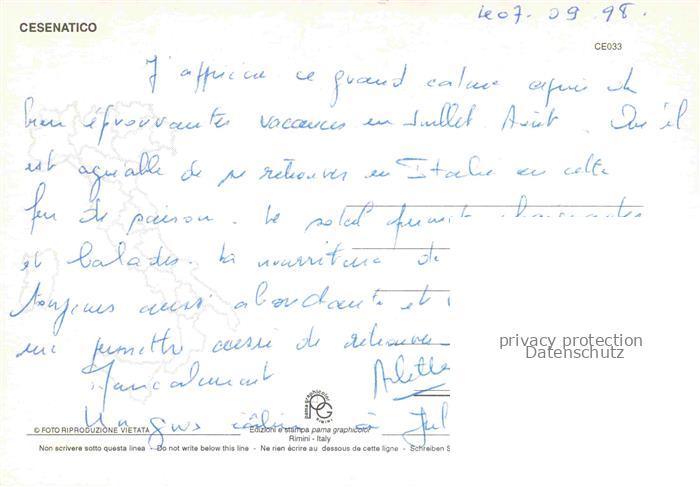 le 07. 09. 98.
CESENATICO
CE033
J'apprécie ce grand calme après de
bien éprouvantes vacances en Juillet Août. Qu'il
est agréable de se retrouver en Italie en cette
fin de saison. Le soleil permet
et balades. La nourriture
toujours aussi abondante et
permettre aussi de retrouver
Amicalement Arlette
privacy protection
Datenschutz
Un gros câlin à Jul
pama graphicolor
PG
RIMINI
© FOTO RIPRODUZIONE VIETATA
Edizioni e stampa pama graphicolor
Rimini - Italy
Non scrivere sotto questa linea - Do not write below this line - Ne rien écrire au dessous de cette ligne - Schreiben S